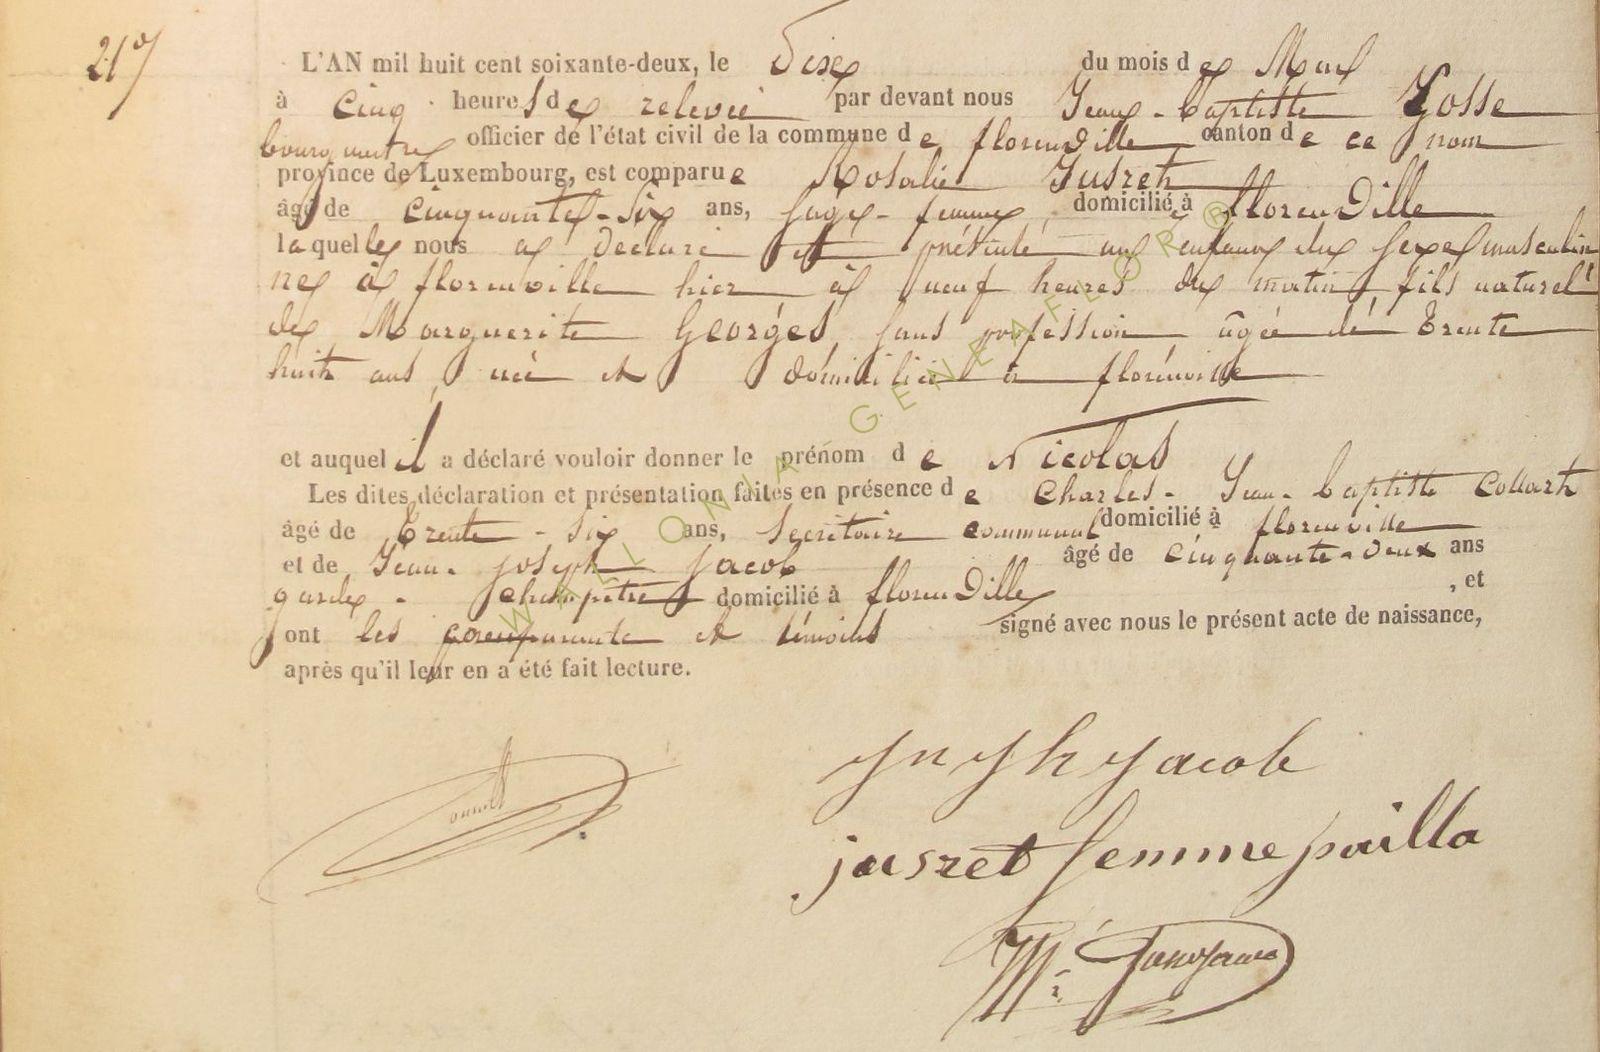 21
L'AN mil huit cent soixante-deux, le Dix du mois de Mai
à cinq heures de relevée par devant nous Jean-baptiste Gosse
bourgmestre officier de l'état civil de la commune de florenville canton de ce nom
province de Luxembourg, est comparue Rosalie Jusreth
âgé de cinquante-six ans, sage-femme, domicilié à florenville
laquelle nous a déclaré et présenté un enfant du sexe masculin
né à florenville hier à neuf heures du matin, fils naturel
de Marguerite Georges, sans profession âgée de trente
huit ans, née et domiciliée à florenville
et auquel il a déclaré vouloir donner le prénom de Nicolas
Les dites déclaration et présentation faites en présence de Charles-Jean-baptiste Collarth
âgé de trente-six ans, secrétaire communal domicilié à florenville
et de Jean-joseph jacob âgé de cinquante-deux ans
garde-champêtre domicilié à florenville , et
ont les comparante et témoins signé avec nous le présent acte de naissance,
après qu'il leur en a été fait lecture.
jacob
jusret femme pailla
WALLONIA GENEAFLOR®